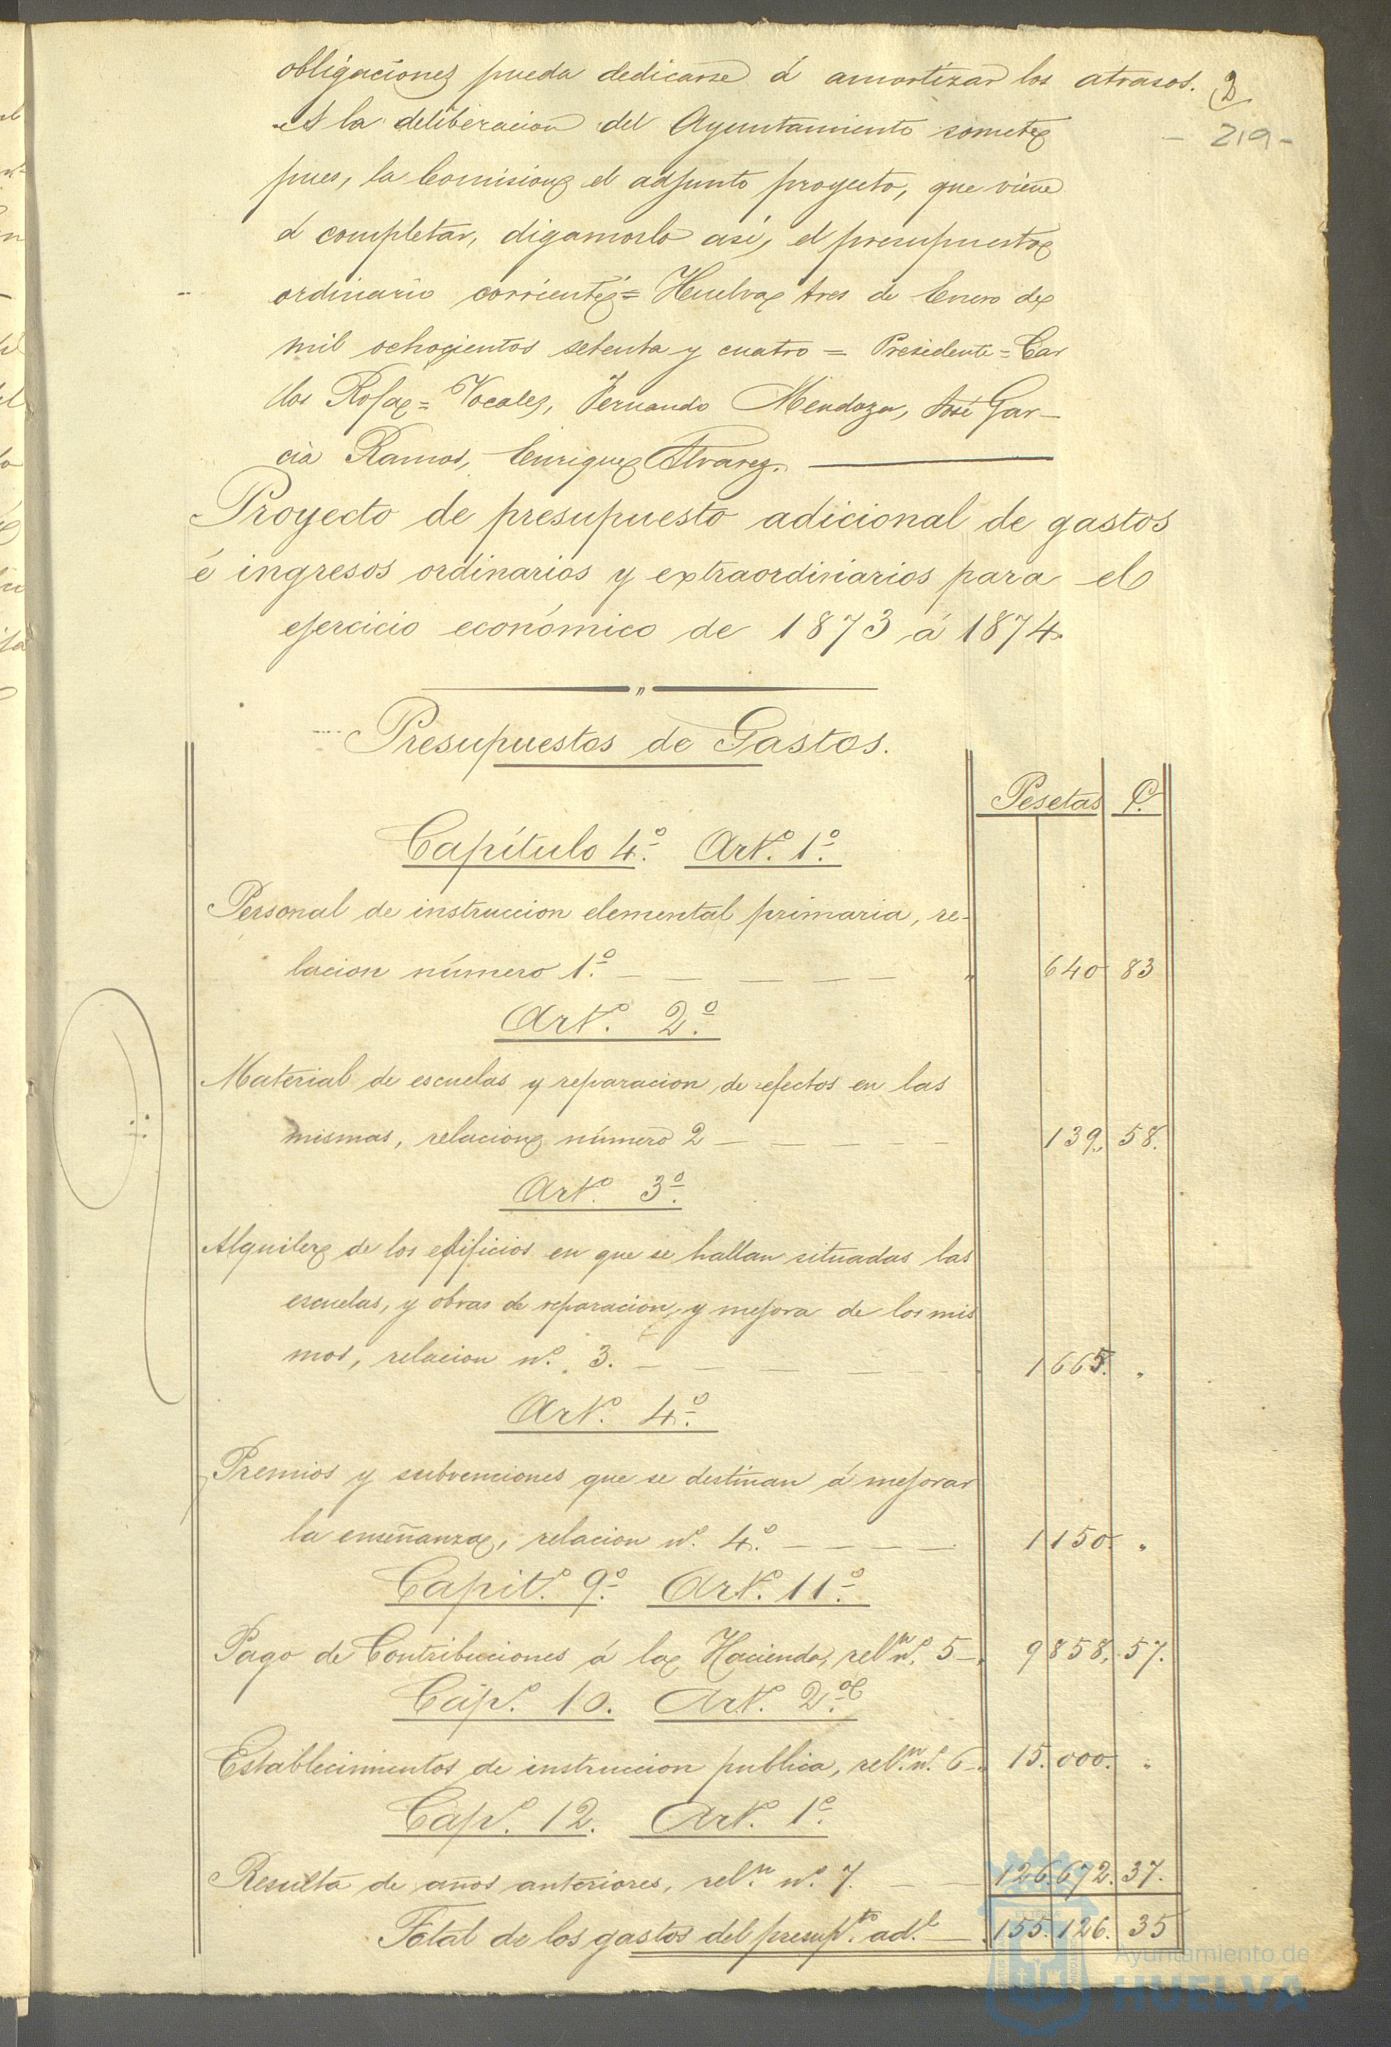 obligaciones pueda dedicarse á amortizar los atrasos.
2
- 219 -
A la deliberacion del Ayuntamiento somete
pues, la Comision el adjunto proyecto, que viene
á completar, digamoslo asi, el presupuesto
ordinario corriente = Huelva tres de Enero de
mil ochocientos setenta y cuatro = Presidente = Car
los Rosa = Vocales, Fernando Mendoza, José Gar-
cia Ramos, Enrique Alvarez.
Proyecto de presupuesto adicional de gastos
é ingresos ordinarios y extraordinarios para el
ejercicio económico de 1873 á 1874.
Presupuestos de Gastos.
Pesetas C.
Capítulo 4.º Art.º 1.º
Personal de instruccion elemental primaria, re-
lacion número 1.º — — — — " 640 83
Art.º 2.º
Material de escuelas y reparacion de efectos en las
mismas, relacion número 2 — — — — — 139. 58.
Art.º 3.º
Alquiler de los edificios en que se hallan situadas las
escuelas, y obras de reparacion y mejora de los mis
mos, relacion n.º 3. — — — — — 1665. "
Art.º 4.º
Premios y subvenciones que se destinan á mejorar
la enseñanza, relacion n.º 4.º — — — — 1150. "
Capit.º 9.º Art.º 11.º
Pago de Contribuciones á la Hacienda, rel.n n.º 5 — 9858, 57.
Cap.º 10. Art.º 2.º
Establecimientos de instruccion publica, rel.n n.º 6 — 15.000. "
Cap.º 12. Art.º 1.º
Resulta de años anteriores, rel.n n.º 7. — — 126.672. 37.
Total de los gastos del presup.to ad.l — 155.126. 35
Ayuntamiento de
HUELVA